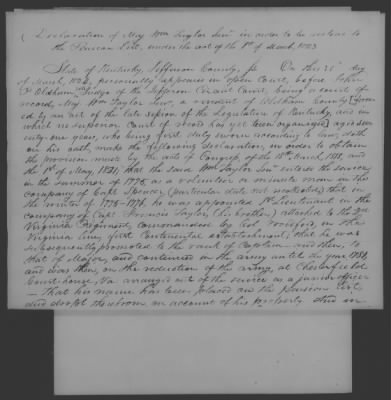 Declaration of Maj Wm Taylor Senr in order to be restored to
the Pension List, under the act of the 1st of March 1823
State of Kentucky Jefferson County, Sc On this 25 day
of March, 1824, personally appears in open Court, before John
P Oldham Judge of the Jefferson Circuit Court, being a court of
record, Maj Wm Taylor Senr, a resident of Oldham County [formed
by an act of the late session of the Legislature of Kentucky, and in
which no superior Court of record has yet been organized] aged seventy
one years, who being first duly sworn according to law, doth
on his oath, make the following declaration, in order to obtain
the provision made by the acts of Congress, of the 18th March 1818, and
the 1st of May, 1820, that the said Wm Taylor Senr entered the service
in the summer of 1775, as a volunteer or minute man in the
company of Capt Spencer (particular date not recollected) that in
the winter of 1775-1776, he was appointed 1st Lieutenant in the
company of Capt Francis Taylor, (his brother) attached to the 2nd
Virginia Regiment, commanded by Col Woodford, on the
Virginia line, first Continental establishment; that he was
subsequently promoted to the rank of Captain and then, to
that of Major, and continued in the army until the year 1781,
and was then, on the reduction of the army, at Chesterfield
Court house, Va arranged out of the service as a junior officer
That his name has been placed on the Pension List
and dropt therefrom on account of his property and in